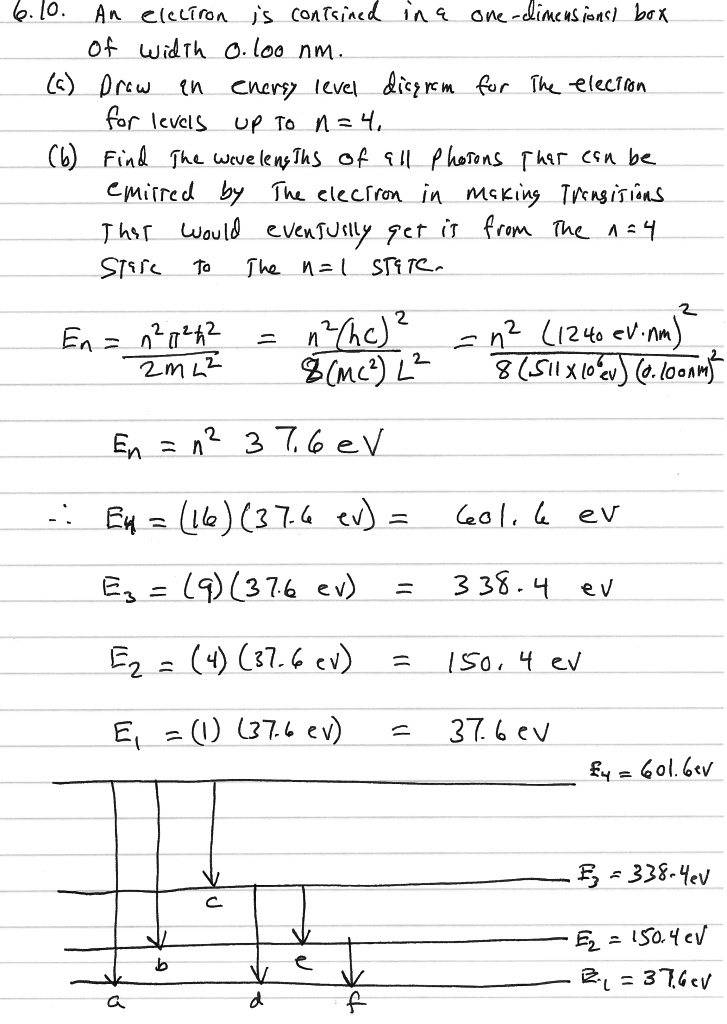 6.10. An electron is contained in a one-dimensional box
of width 0.100 nm.
(a) Draw an energy level diagram for the electron
for levels up to n = 4.
(b) Find the wavelengths of all photons that can be
emitted by the electron in making transitions
that would eventually get it from the n = 4
state to the n = 1 state.
En = n²π²ħ² / 2mL² = n²(hc)² / 8(mc²)L² = n² (1240 eV·nm)² / 8(.511 x 10⁶ eV)(0.100nm)²
En = n² 37.6 eV
∴ E4 = (16)(37.6 eV) = 601.6 eV
E3 = (9)(37.6 eV) = 338.4 eV
E2 = (4)(37.6 eV) = 150.4 eV
E1 = (1)(37.6 eV) = 37.6 eV
E4 = 601.6eV
E3 = 338.4eV
c
E2 = 150.4eV
b e
E1 = 37.6eV
a d f